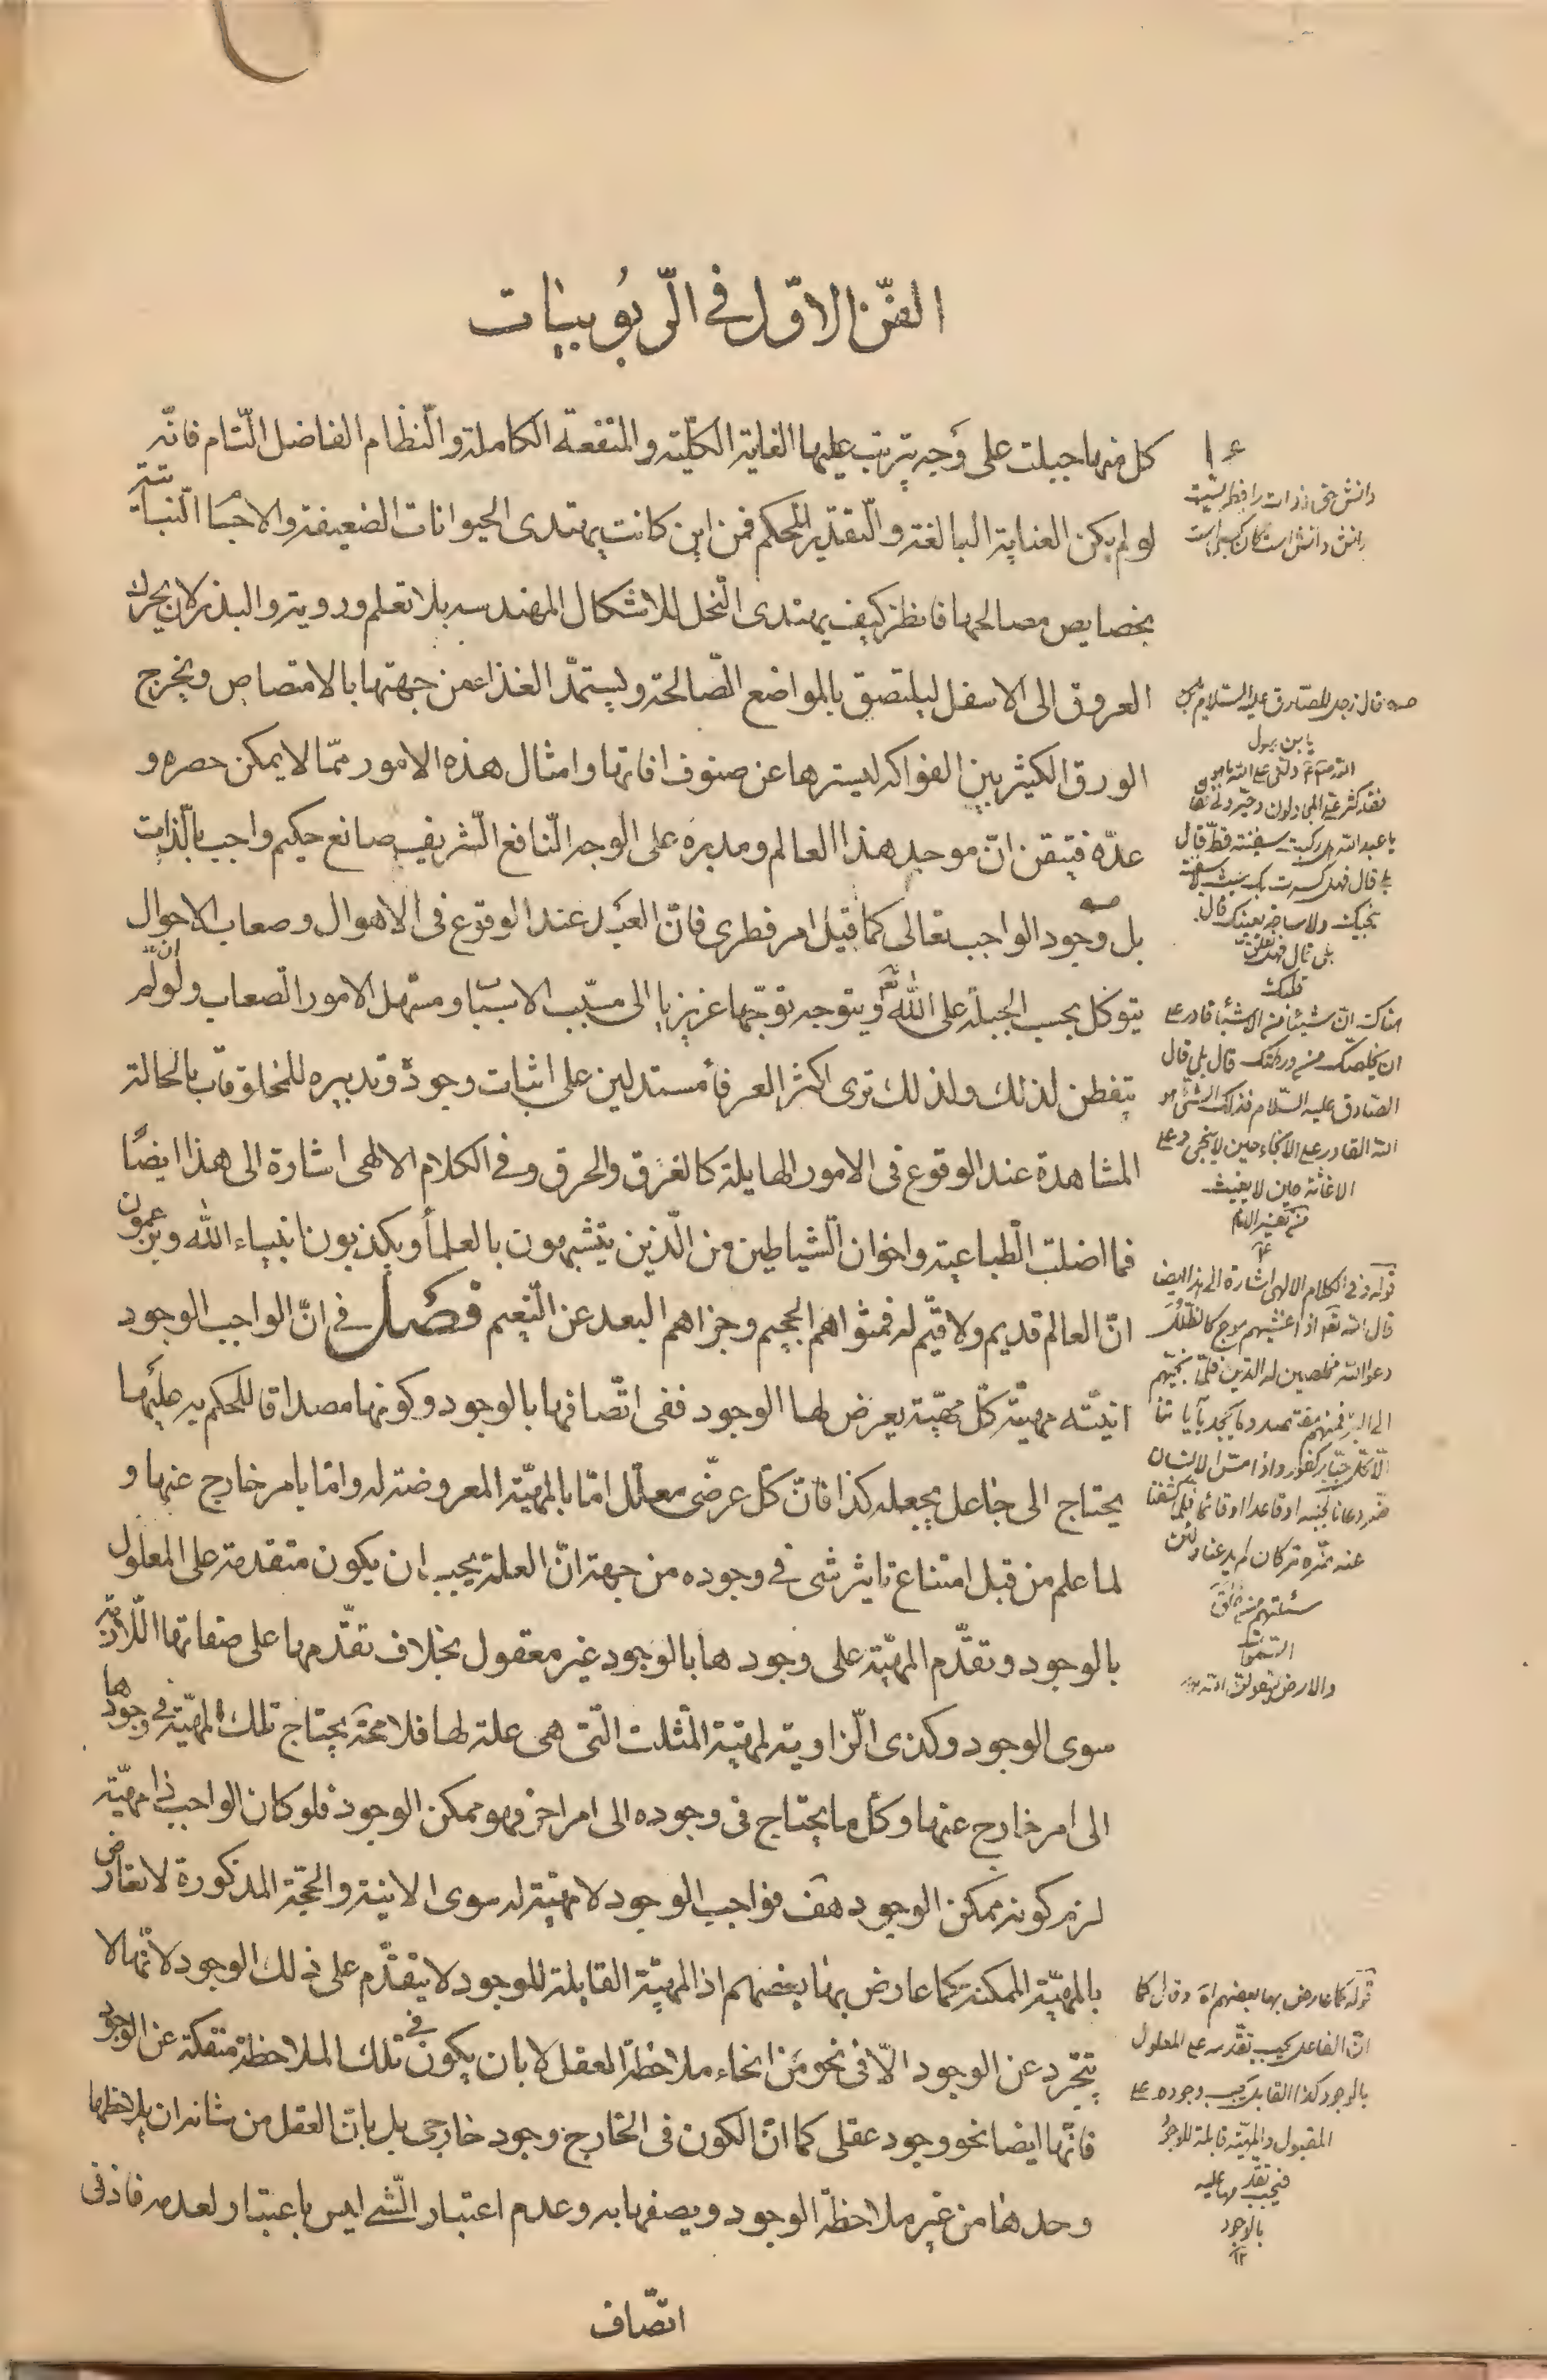 الفنّ الاوّل فى الرّبوبيات
كل منها جبلت على وجه يترتب عليها الغاية الكلّية والمنفعة الكاملة والنّظام الفاضل التّام فانّه
لو لم يكن العناية البالغة والتّقدير المحكم فمن اين كانت يهتدى الحيوانات الضعيفة والاجسا النّباتية
بخصايص مصالحها فانظر كيف يهتدى النّحل للاشكال المهندسه بلا تعلم وروية والبذر لان يحرك
العروق الى الاسفل ليلتصق بالمواضع الصّالحة ويستمدّ الغذا عن جهتها بالامتصاص ويخرج
الورق الكثير بين الفواكه ليسترها عن صنوف افاتها وامثال هذه الامور ممّا لا يمكن حصره و
عدّه فتيقن انّ موجد هذا العالم ومدبره على الوجه النّافع الشّريف صانع حكيم واجب بالذّات
بل وجود الواجب تعالى كما قيل امر فطرى فانّ العبد عند الوقوع فى الاهوال وصعاب الاحوال
يتوكل بحسب الجبلّة على الله تع ويتوجه توجّها غريزيا الى مسبّب الاسبّا ومسهل الامور الصّعاب ولو لم
يتفطن لذلك ولذلك ترى اكثر العرفا مستدلين على اثبات وجوده وتدبيره للمخلوقات بالحالة
المشاهدة عند الوقوع فى الامور الهايلة كالغرق والحرق وفى الكلام الالهى اشارة الى هذا ايضًا
فما اضلت الطّباعية واخوان الشّياطين من الّذين يتشبهون بالعلمأ ويكذبون انبياء الله ويزعمون
انّ العالم قديم ولا قيّم له فمثواهم الجحيم وجزاهم البعد عن النّعيم فصل فى انّ الواجب الوجود
انيتّه مهيته كلّ مهيّة يعرض لها الوجود ففى اتّصافها بالوجود وكونها مصداقا للحكم به عليها
يحتاج الى جاعل يجعله كذا فانّ كلّ عرضّى معلّل امّا بالمهيّة المعروضة له وامّا بامر خارج عنها و
لما علم من قبل امتناع تاثير شى فى وجوده من جهة انّ العلة يجب ان يكون متقدمة على المعلول
بالوجود وتقدّم المهيّة على وجودها بالوجود غير معقول بخلاف تقدّمها على صفاتها اللّازمة
سوى الوجود وكذى الزّاوية لمهيّة المثلث الّتى هى علة لها فلا محة يحتاج تلك المهيّة فى وجودها
الى امر خارج عنها وكل ما يحتاج فى وجوده الى امر اخر فهو ممكن الوجود فلو كان الواجب ذا مهيّة
لزم كونه ممكن الوجود هف فواجب الوجود لا مهيّة له سوى الانية والحجّة المذكورة لا تعارض
بالمهيّة الممكنة كما عارض بها بعضهم اذ المهيّة القابلة للوجود لا يتقدّم على ذلك الوجود لانّها لا
يتجّرد عن الوجود الّا فى نحو من انحاء ملاحظة العقل لا بان يكون فى تلك الملاحظة منفكة عن الوجود
فانّها ايضا نحو وجود عقلى كما انّ الكون فى الخارج وجود خارجى بل بانّ العقل من شانه ان يلاحظها
وحدها من غير ملاحظة الوجود ويصفها به وعدم اعتبار الشّى ليس باعتبار لعدمه فاذ فى
اتصّاف
دانش حق ذوات را فطريست
دانش دانش است كان كسبى است
قال رجل للصّادق عليه السّلام
يا بن رسول
الله دلّنى على الله ما هو
فقد كثر علىّ المجادلون وحيّرونى فقال
يا عبد الله هل ركبت سفينة قطّ قال
بلى قال فهل كسرت بك حيث لا سفينة
تنجيك ولا سباحة تغنيك قال
بلى قال فهل تعلق
قلبك
هناك انّ شيئا من الاشيا قادر على
ان يخلصك من ورطتك قال بلى قال
الصّادق عليه السّلام فذلك الشّئ هو
الله القادر على الانجاء حين لا منجى وعلى
الاغاثة حين لا مغيث
قوله وفى الكلام الالهى اشارة الى هذا ايضا
قال الله تعو اذا غشيهم موج كالظّلل
دعوا الله مخلصين له الدّين فلمّا نجّيهم
الى البرّ فمنهم مقتصد وما يجحد بآياتنا
الّا كلّ ختّار كفور واذا مسّ الانسان
ضّر دعانا لجنبه او قاعدا او قائما فلمّا كشفنا
عنه ضرّه مر كان لم يدعنا ولئن
سئلتهم من خلق
السّموات
والارض ليقولنّ الله
قوله كما عارض بها بعضهم اه وقال كما
انّ الفاعل يجب تقدّمه على المعلول
بالوجود كذا القابل يجب وجوده على
المقبول والمهيّة قابلة للوجود
فيجب تقدمها عليه
بالوجود
١٢